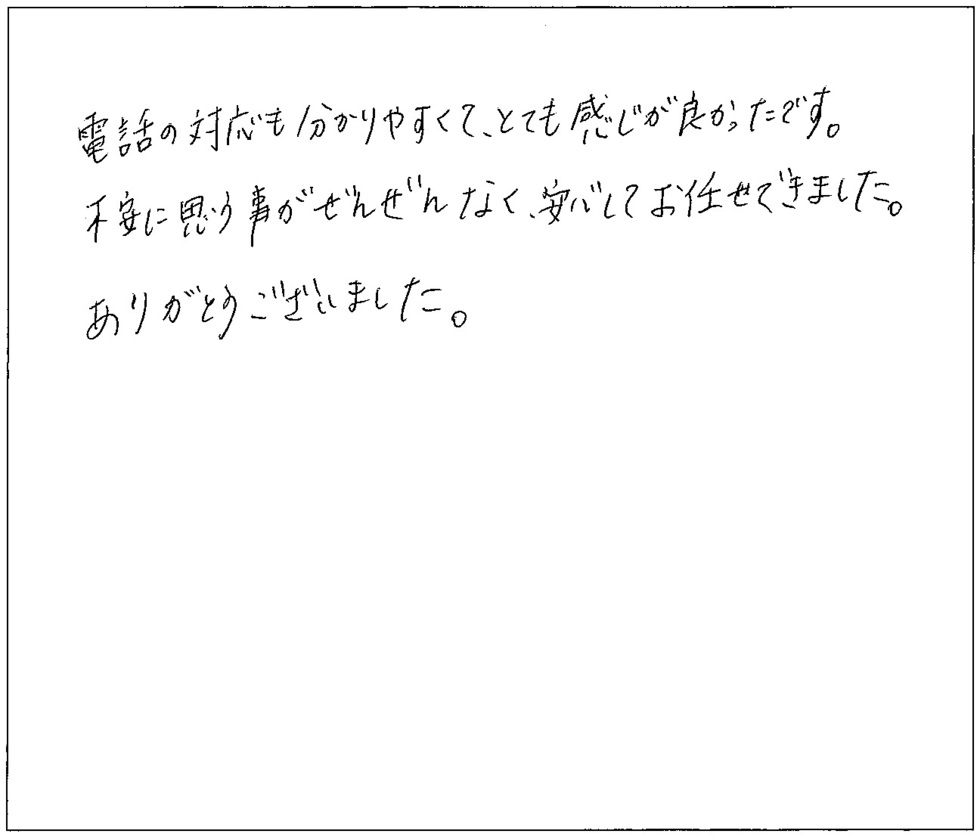 電話の対応も分かりやすくて、とても感じが良かったです。
不安に思う事がぜんぜんなく、安心してお任せできました。
ありがとうございました。